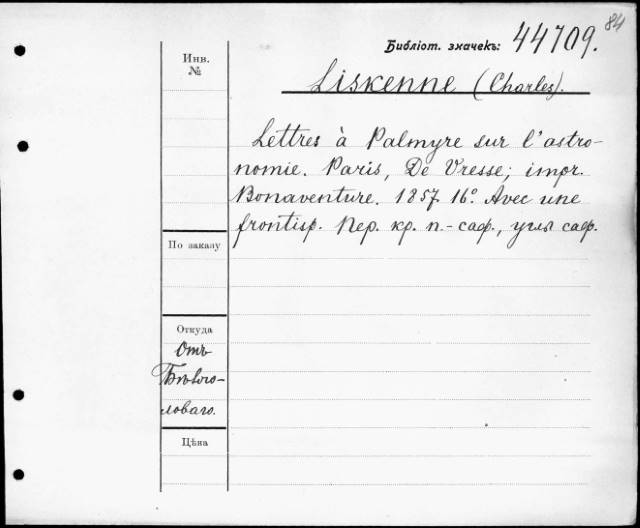 84
Библіот. значекъ: 44709.
Инв.
№
Liskenne (Charles).
Lettres à Palmyre sur l'astro-
nomie. Paris, De Vresse; impr.
Bonaventure. 1857. 16º. Avec une
frontisp. Пер. кр. п.-саф., углы саф.
По заказу
Откуда
Отъ
Бѣлого-
ловаго.
Цѣна